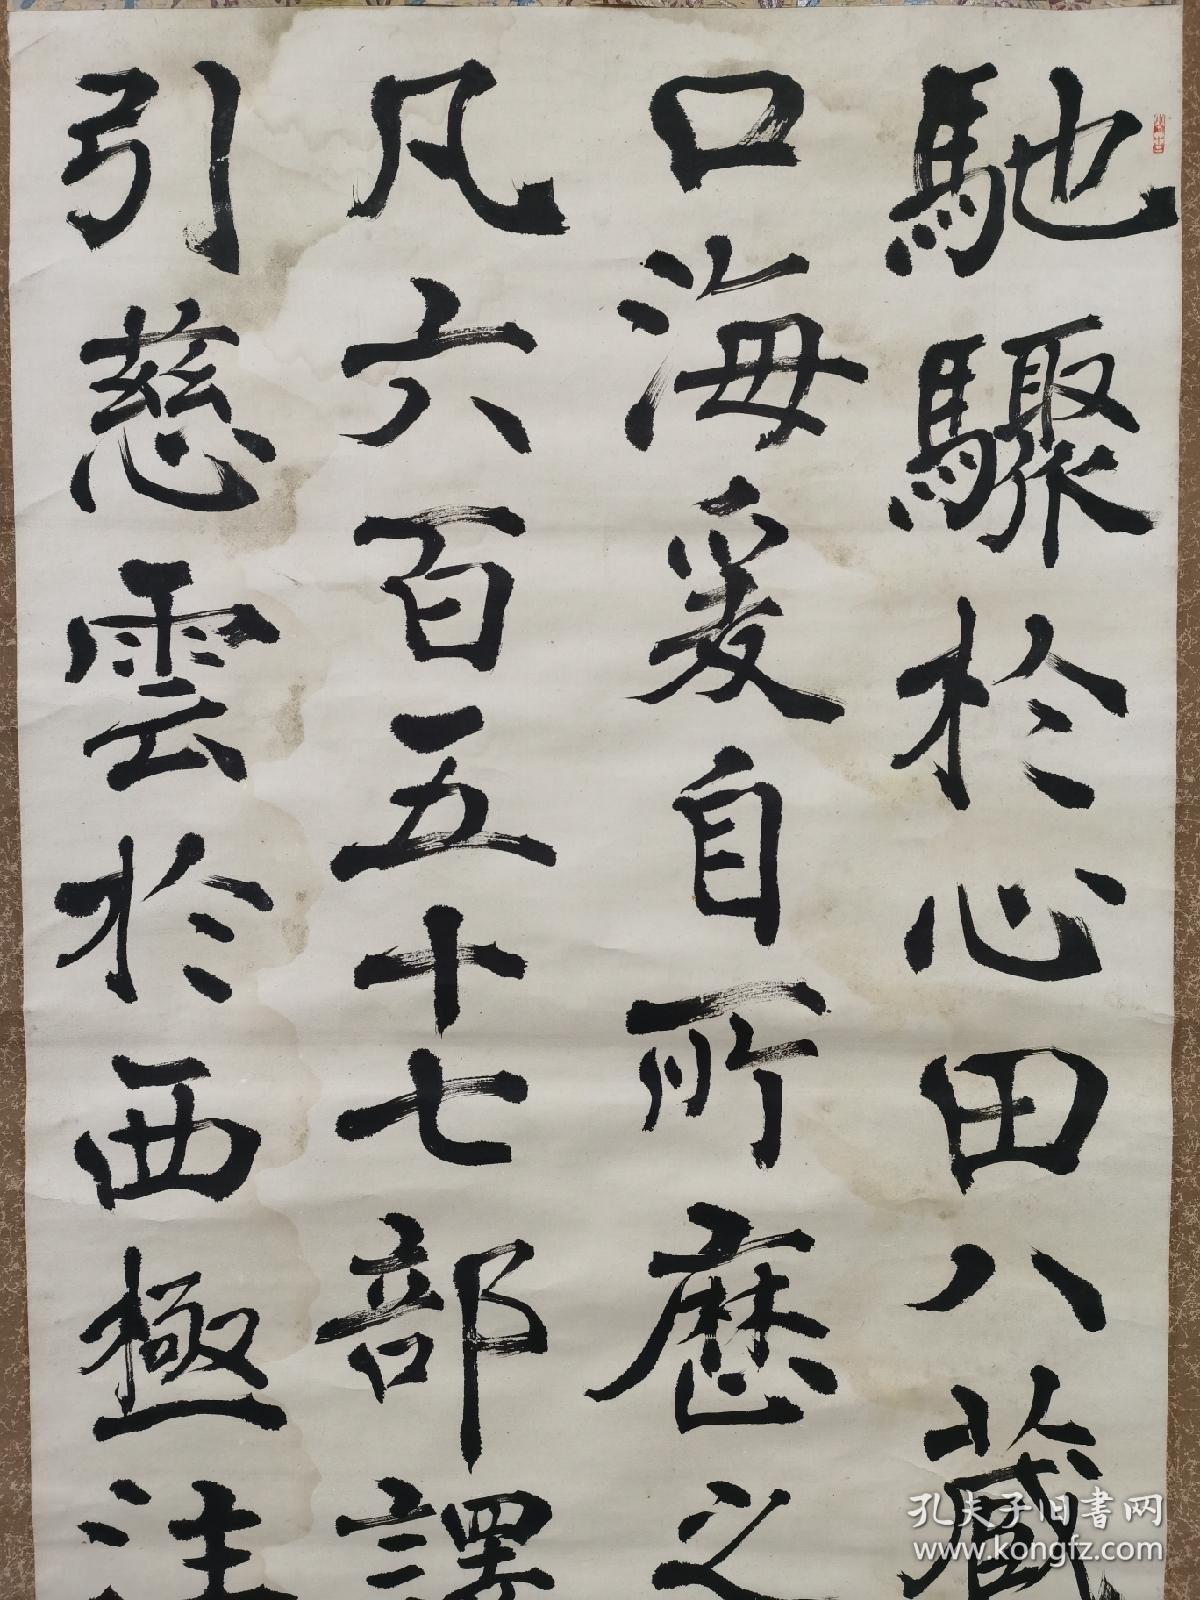 馳驟於心田八藏
口海爰自所歷之
凡六百五十七部譯
引慈雲於西極注
孔夫子旧書网
www.kongfz.com